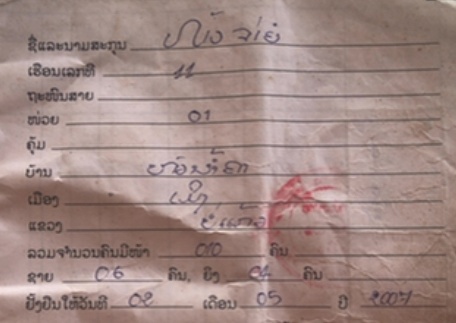 ຊື່ແລະນາມສະກຸນ
ເຮືອນເລກທີ 11
ຖະໜົນສາຍ
ໜ່ວຍ 01
ຄຸ້ມ
ບ້ານ
ເມືອງ
ແຂວງ
ລວມຈຳນວນຄົນມີໜ້າ 010 ຄົນ
ຊາຍ 06 ຄົນ, ຍິງ 04 ຄົນ
ຢັ້ງຢືນໃຫ້ວັນທີ 02 ເດືອນ 05 ປີ 2007